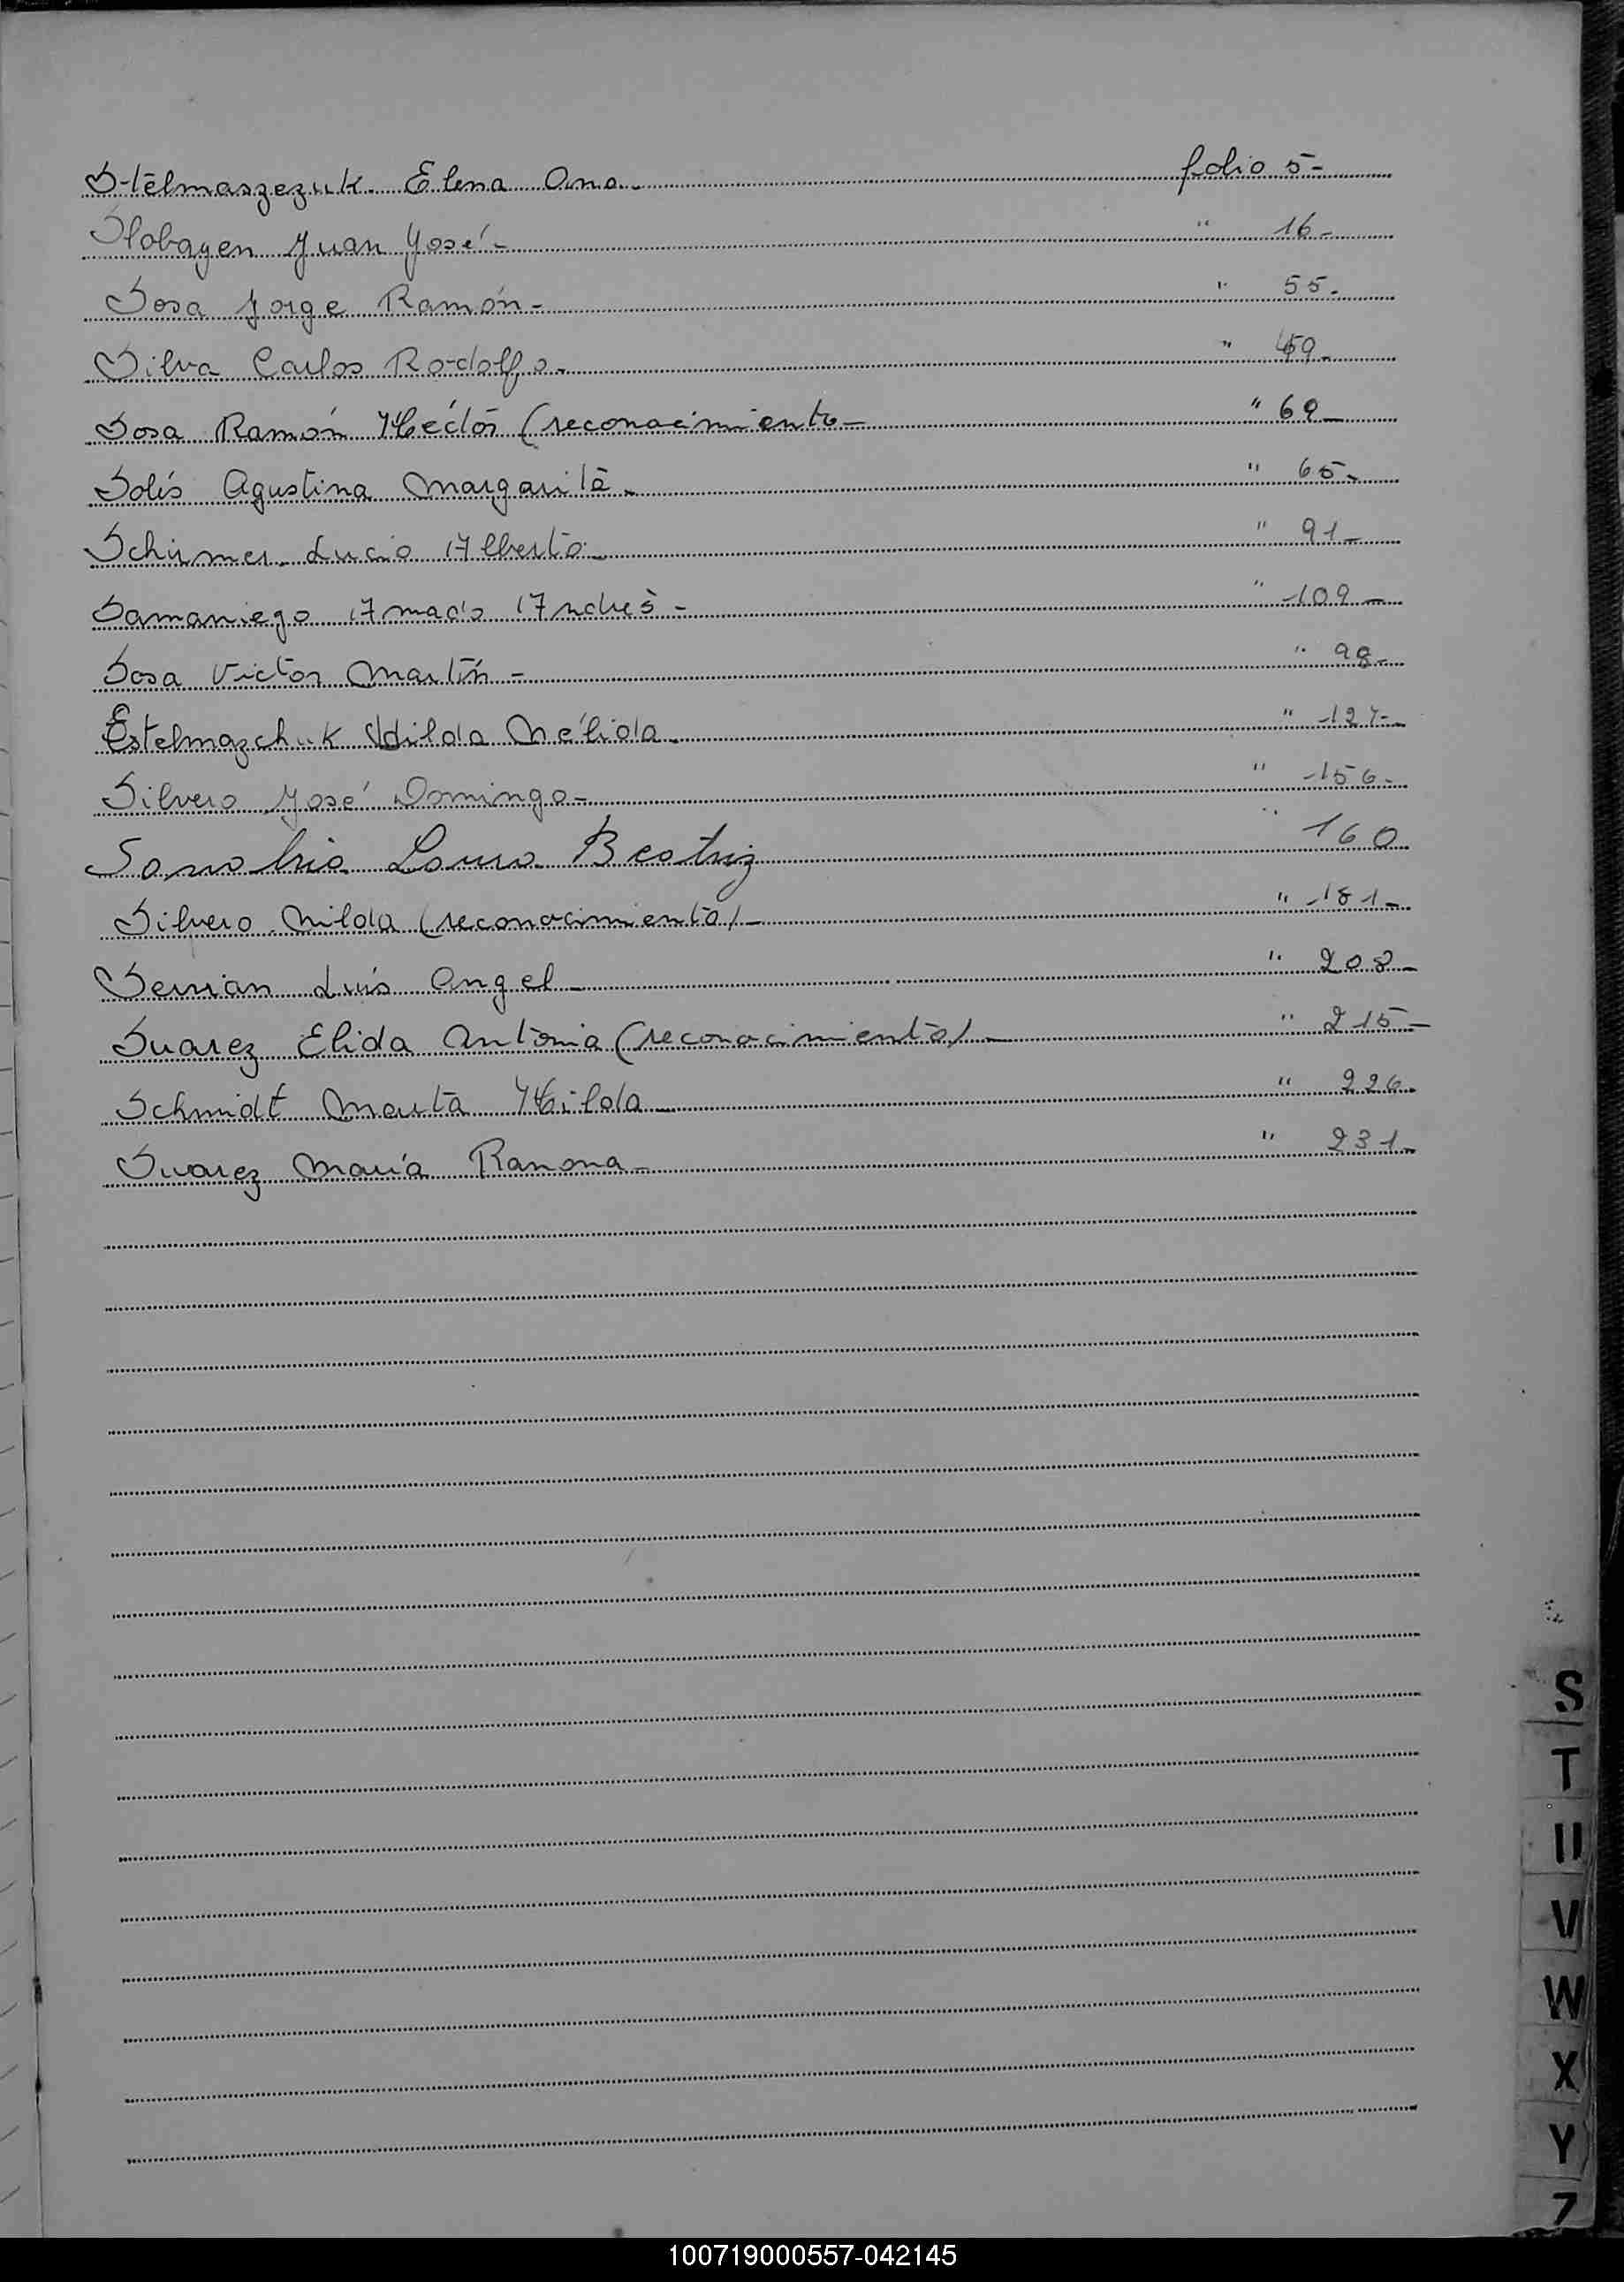 Stelmaszezuk Elena Ana folio 5-
Slobayen Juan José - " 16-
Sosa Jorge Ramón - " 55-
Silva Carlos Rodolfo - "
Sosa Ramón Héctor (reconocimiento - " 69-
Solís Agustina Margarita - " 65-
Schirmer Lucio Alberto - " 91-
Samaniego Amado Andrés - " 109-
Sosa Victor Martín - " 98-
Estelmazchuk Hilda Nélida - "
Silvero José Domingo - " 156-
Sanabria Laura Beatriz " 160
Silvero Nilda (reconocimiento) - " 181-
Serrian Luis Angel - " 208-
Suarez Elida Antonia (reconocimiento) - " 215-
Schmidt Marta Hilda - " 226-
Suarez María Ramona - " 231-
S
T
U
V
W
X
Y
Z
100719000557-042145